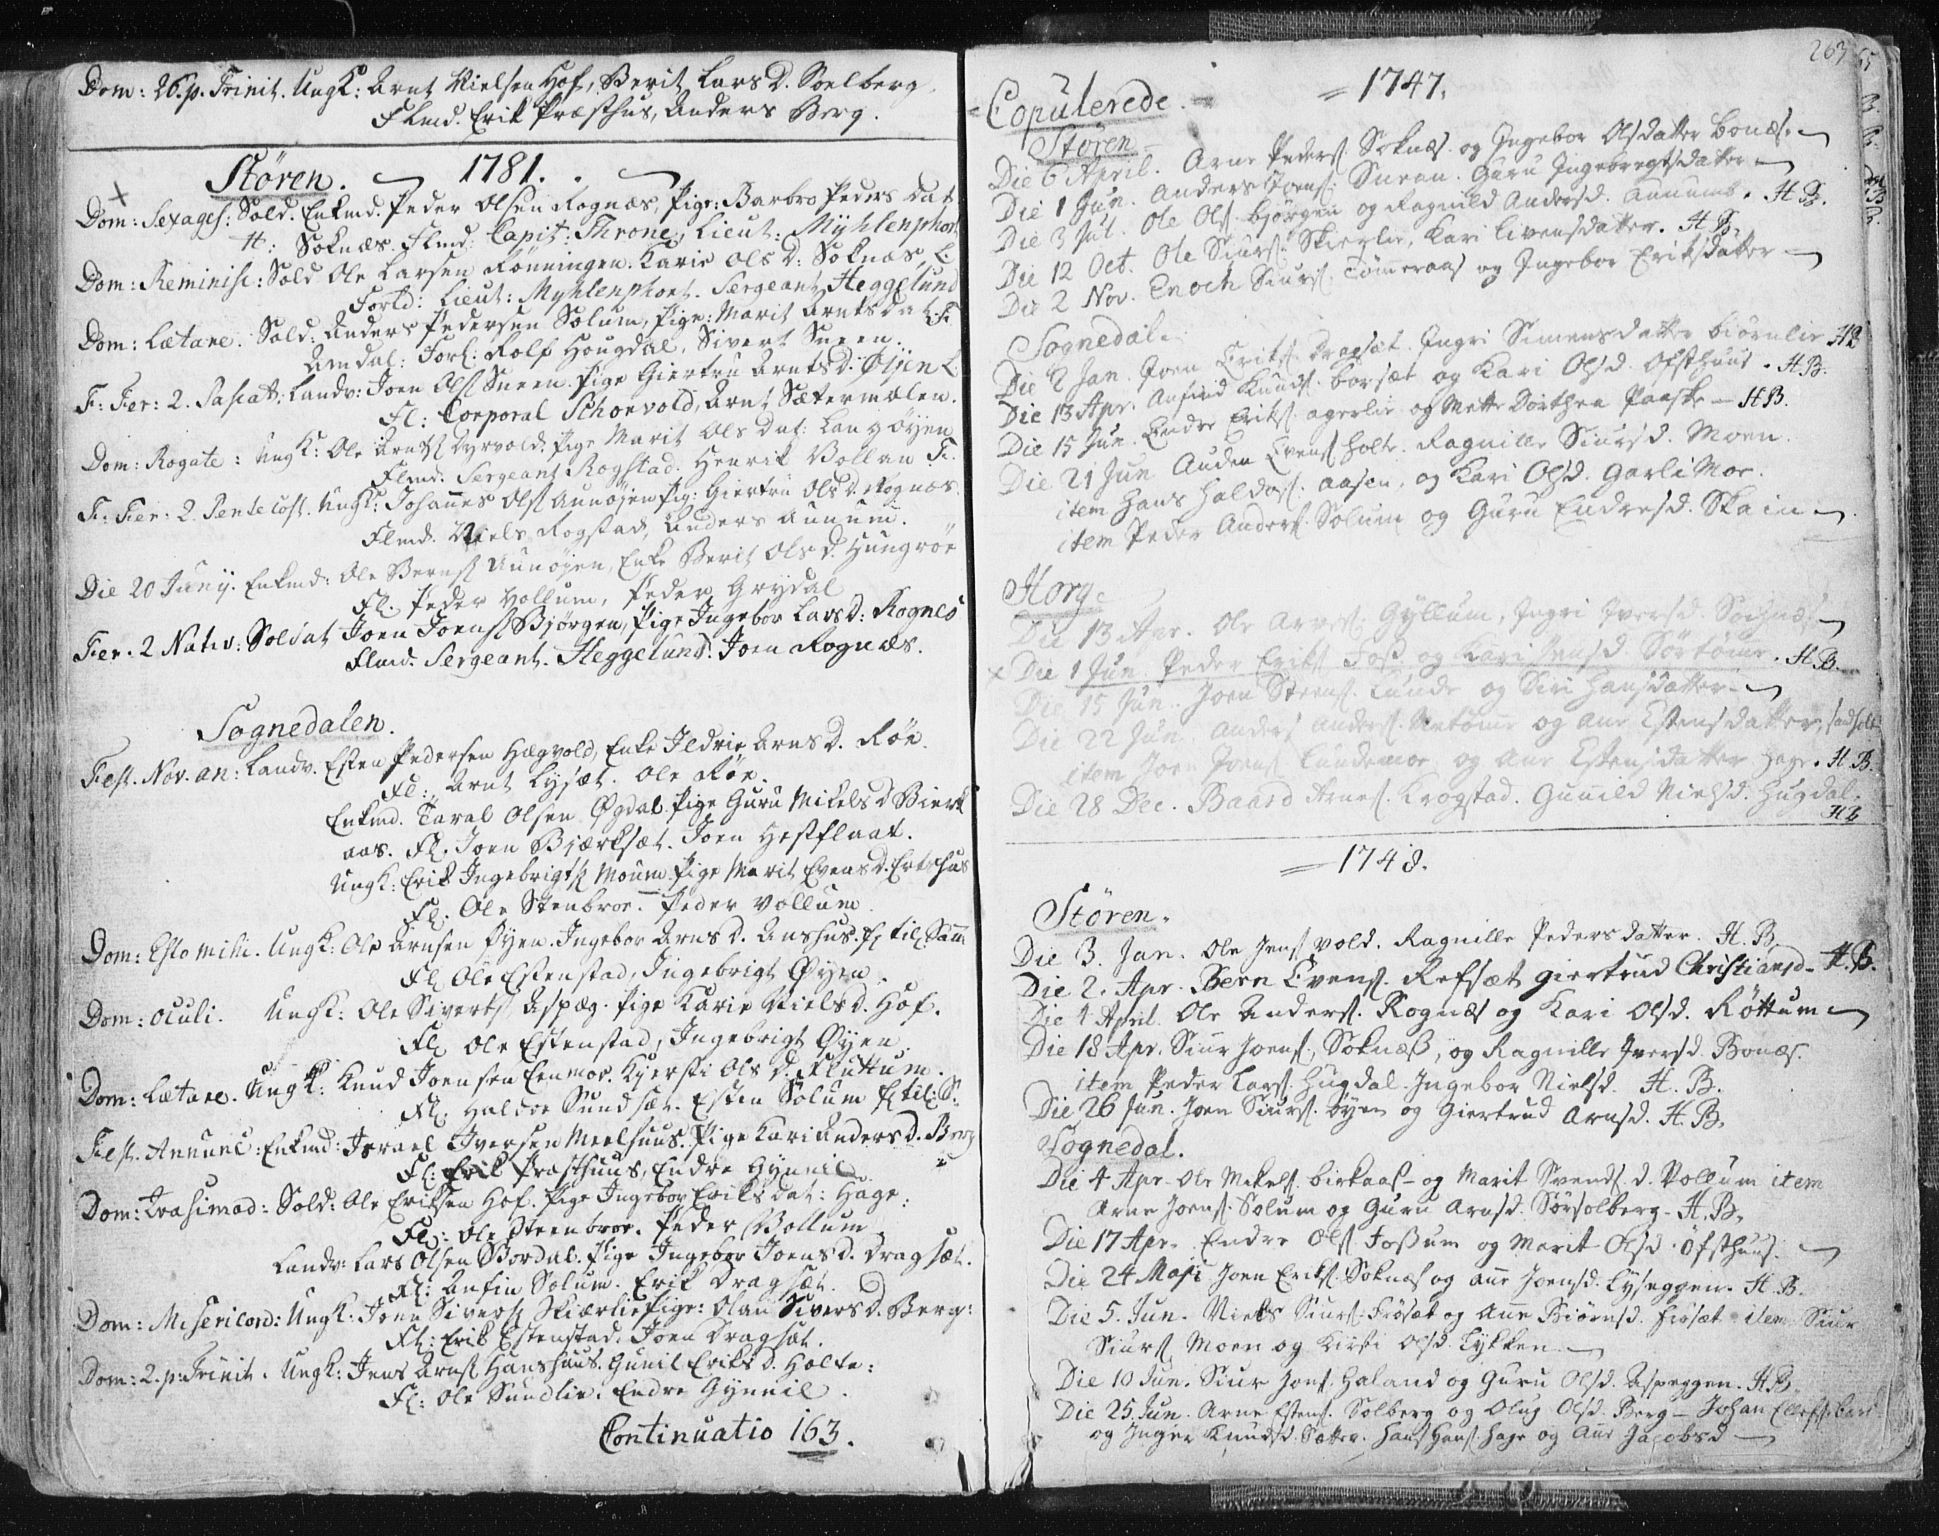 Dom: 26. p. Trinit. Ungk: Arnt Nielsen Hof, Berit Lars D. Soelberg.
Flmd. Erik Præsthus, Anders Berg.
Støren. 1781.
Dom: Sexages: Sold. Enkmd. Peder Olsen Rognæs, Pige: Barbro Peders Dat
H: Soknæs. Flmd: Capit: Throne, Lieut: Myhlenphort
Dom: Reminisc: Sold Ole Larsen Rønningen. Karie Ols D: Soknæs,
Forld: Lieut: Myhlenphort. Sergeant Heggelund
Dom: Lætare. Sold: Anders Pedersen Solum, Pige: Marit Arntsdat:
Amdal: Forl: Rolf Hougdal, Sivert Sneen.
F: Fer: 2. Pascat: Landv: Joen Ols Sneen. Pige Giertru Arnts D. Øyen
Fl: Corporal Schonvold, Arnt Sætermælen.
Dom: Rogate: Ungk: Ole Arnts Pige Marit Ols Dat: Langøyen
Flmd. Sergeant Rogstad. Henrik Vollan
F: Fer: 2. Pentecost. Ungk: Johannes Ols Aunøjen Pig: Giertru Ols D. Rognæs.
Flmd. Niels Rogstad, Anders Aunum.
Die 20 Junij. Enkmd: Ole Berns Aunøyen, Enke Berit Ols D. Hungrøe
Fl. Peder Vollum, Peder Grydal
Fer. 2 Nativ: Soldat Joen Joens Bjørgen, Pige Ingebor Lars D: Rognes
Flmd. Sergeant. Heggelund. Joen Rognæs.
Sognedalen.
Fest. Nov. an: Landv. Esten Pedersen Hægvold, Enke Ildrie Arns D. Røe.
Fl: Arnt Lysæt. Ole Røe.
Enkmd. Taral Olsen Øgdal. Pige Guru Mikels D Bierk
aas. Fl. Joen Bjærksæt. Joen Hestflaat.
Ungk: Erik Ingebrigts Moum. Pige Marit Evens D.
Fl. Ole Stenbroe. Peder Vollum
Dom: Esto mihi. Ungk: Ole Arnsen Øyen. Ingebor Arns D. Anshus. fl til
Fl Ole Estenstad, Ingebrigt Øyen.
Dom: Oculi. Ungk: Ole Siverts Aspæg. Pige Karie Niels D. Hof.
Fl Ole Estenstad, Ingebrigt Øyen.
Dom: Lætare. Ungk: Knud Joensen Eenmoe. Kjersti Ols D. Fluttum.
Fl. Haldoe Sundsæt. Esten Solum
Fest. Annunc: Enkmd: Israel Iversen Meelhuus. Pige Kari Anders D. Berg
Fl: Erik Præsthuus, Endre Gynnil
Dom: Qvasimod: Sold: Ole Eriksen Hof. Pige Ingebor Eriks Dat: Hage:
Fl: Ole Steenbroe. Peder Vollum
Landv: Lars Olsen Stordal. Pige Ingebor Joens D. Dragsæt.
Fl: Anfin Solum. Erik Dragsæt
Dom: Misericord: Ungk: Joen Sivers Skiærlie Pige: Olau Sivers D. Berg:
Fl: Erik Estenstad. Joen Dragsæt.
Dom: 2. p: Trinit. Ungk: Jens Arns Hanshuus. Gunil Eriks D. Holte:
Fl: Ole Sundlie. Endre Gynnil.
Continuatio 163.
263
Copulerede. 1747.
Støren
Die 6 April. Arne Peders. Soknæs og Ingebor Olsdatter Bonæs.
Die 1 Jun. Anders Joens. Sneen. Guru Ingebregtsdatter
Die 3 Jul. Ole Ols Bjørgen og Ragnild Andersd. Aunums. H.B.
Die 12 Oct. Ole Siurs. Skierlie, Kari Livensdatter. H.B.
Die 2 Nov. Enoch Siurs. Tømmeraas og Ingebor Eriksdatter
Sognedal.
Die 2 Jan. Joen Eriks. Dragsæt. Ingri Simensdatter Biørnlie HB
Die 13 Apr. Anfind Knuds. Borsæt og Kari Olsd. Ofsthuus. H.B.
Die 15 Jun. Endre Eriks. Agerlie og Mette Dorthea Paaske HB.
Die 21 Jun Auden Evens Holte. Ragnille Siursd. Moen.
item Hans Haldos. Aasen, og Kari Olsd. Garlimoe.
item Peder Anders. Solum og Guru Endresd. Skain
Horg
Die 13 Apr. Ole Arnes. Gyllum, Ingri Iversd. Soknæs
Die 1 Jun Peder Eriks Foss og Kari Jensd. Sørtømme. H.B.
Die 15 Jun. Joen Steens. Lunde og Siri Hansdatter
Die 22 Jun. Anders Anders. og Ane Estensdatter,
item Joen Joens Lundemoe og Ane Estensdatter Hage. H.B.
Die 28 Dec. Baard Arnes. Krogstad. Gunild Nielsd. Hugdal.
HB
1748.
Støren.
Die 3. Jan. Ole Jens Vold. Ragnille Pedersdatter. H.B
Die 2. Apr. Bern Evens. Refsæt Giertrud Christiansd. H.B.
Die 4 April. Ole Anders. Rognæs og Kari Olsd. Røttum
Die 18 Apr. Siur Joens. Soknæss, og Ragnille Iversd. Bonæs.
item Peder Lars. Hugdal. Ingebor Nielsd. H.B.
Die 26 Jun. Joen Siurs. Øyen og Giertrud Arnsd. H.B.
Sognedal.
Die 4 Apr. Ole Mikels. Birkaas og Marit Svends. d. Vollum item
Arne Joens. Solum og Guru Arnsd. Sørsolberg. H.B.
Die 17 Apr. Endre Ols Fossum og Marit Olsd. Ofsthuus.
Die 24 Maji Joen Eriks. Soknæs og Ane Joensd. Lyseggen. H.B.
Die 5. Jun. Niels Siurs. Frøsæt og Ane Biørnsd. Frøsæt item Siur
Siurs Moen og Kirsti Olsd. Lykken
Die 10 Jun. Siur Jons. Haland og Guru Olsd. Aspeggen. H.B.
Die 25. Jun. Arne Estens. Solberg og Olug Olsd. Berg Johan
og Inger Knudsd. Sætter. Hans Hans Hage og Ane Jacobsd